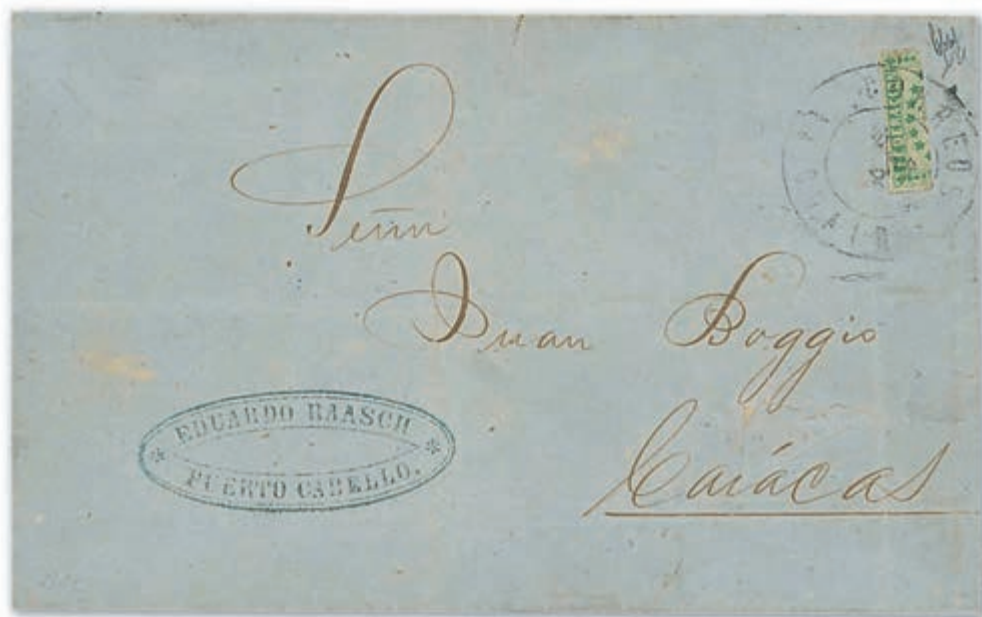 Señor
Juan Boggio
Carácas
EDUARDO RAASCH
PUERTO CABELLO.